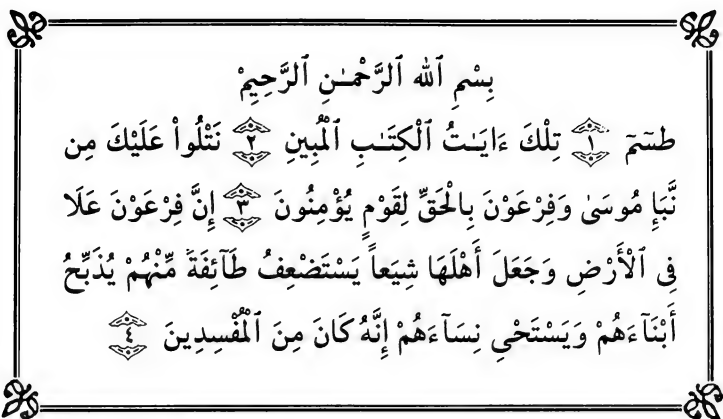 بِسْمِ ٱللهِ ٱلرَّحْمَـٰنِ ٱلرَّحِيمِْ
طسٓمٓ ١ تِلْكَ ءَايَـٰتُ ٱلْكِتَـٰبِ ٱلْمُبِينِ ٢ نَتْلُواْ عَلَيْكَ مِن
نَّبَإِ مُوسَىٰ وَفِرْعَوْنَ بِالْحَقِّ لِقَوْمٍ يُؤْمِنُونَ ٣ إِنَّ فِرْعَوْنَ عَلَا
فِى ٱلْأَرْضِ وَجَعَلَ أَهْلَهَا شِيَعاً يَسْتَضْعِفُ طَآئِفَةً مِّنْهُمْ يُذَبِّحُ
أَبْنَآءَهُمْ وَيَسْتَحْىِ نِسَآءَهُمْ إِنَّهُ كَانَ مِنَ ٱلْمُفْسِدِينَ ٤